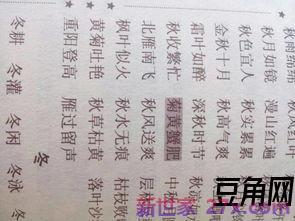 秋雨绵绵
秋月如镜 漫山红遍
秋色宜人 秋实累累
金秋十月 秋高气爽
霜叶如醉 深秋时节 秋
秋收繁忙 菊黄蟹肥 中
北雁南飞 秋风送爽 层林
枫叶似火 秋水无痕 枯枝败
黄菊吐艳 秋草枯黄 落叶沙
重阳登高 雁过留声
冬
冬耕 冬灌 冬闲 冬泳 冬
豆角网